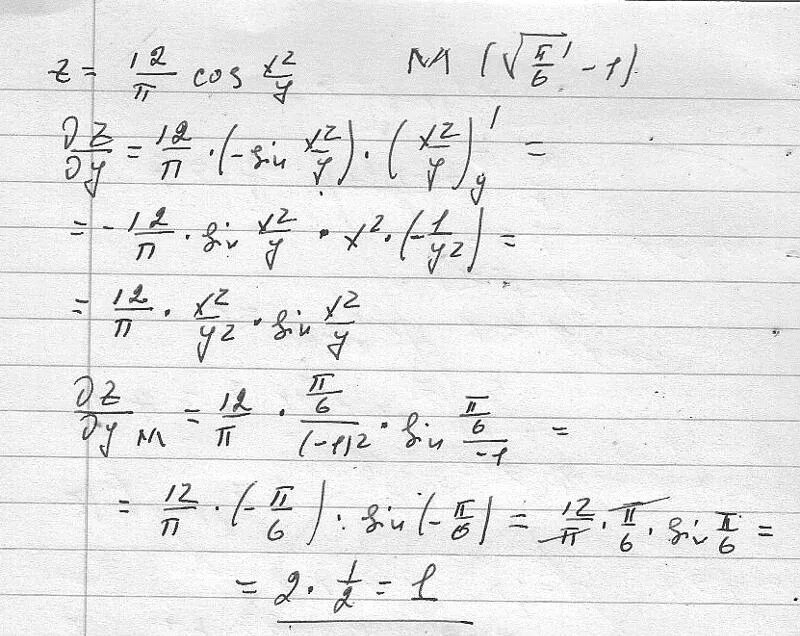 z = 12/π cos x²/y   M (√(π/6), -1)
∂z/∂y = 12/π · (-sin x²/y) · (x²/y)'y =
= -12/π · sin x²/y · x² · (-1/y²) =
= 12/π · x²/y² · sin x²/y
∂z/∂y M = 12/π · (π/6)/(-1)² · sin (π/6)/-1 =
= 12/π · (-π/6) · sin(-π/6) = 12/π · π/6 · sin π/6 =
= 2 · 1/2 = 1